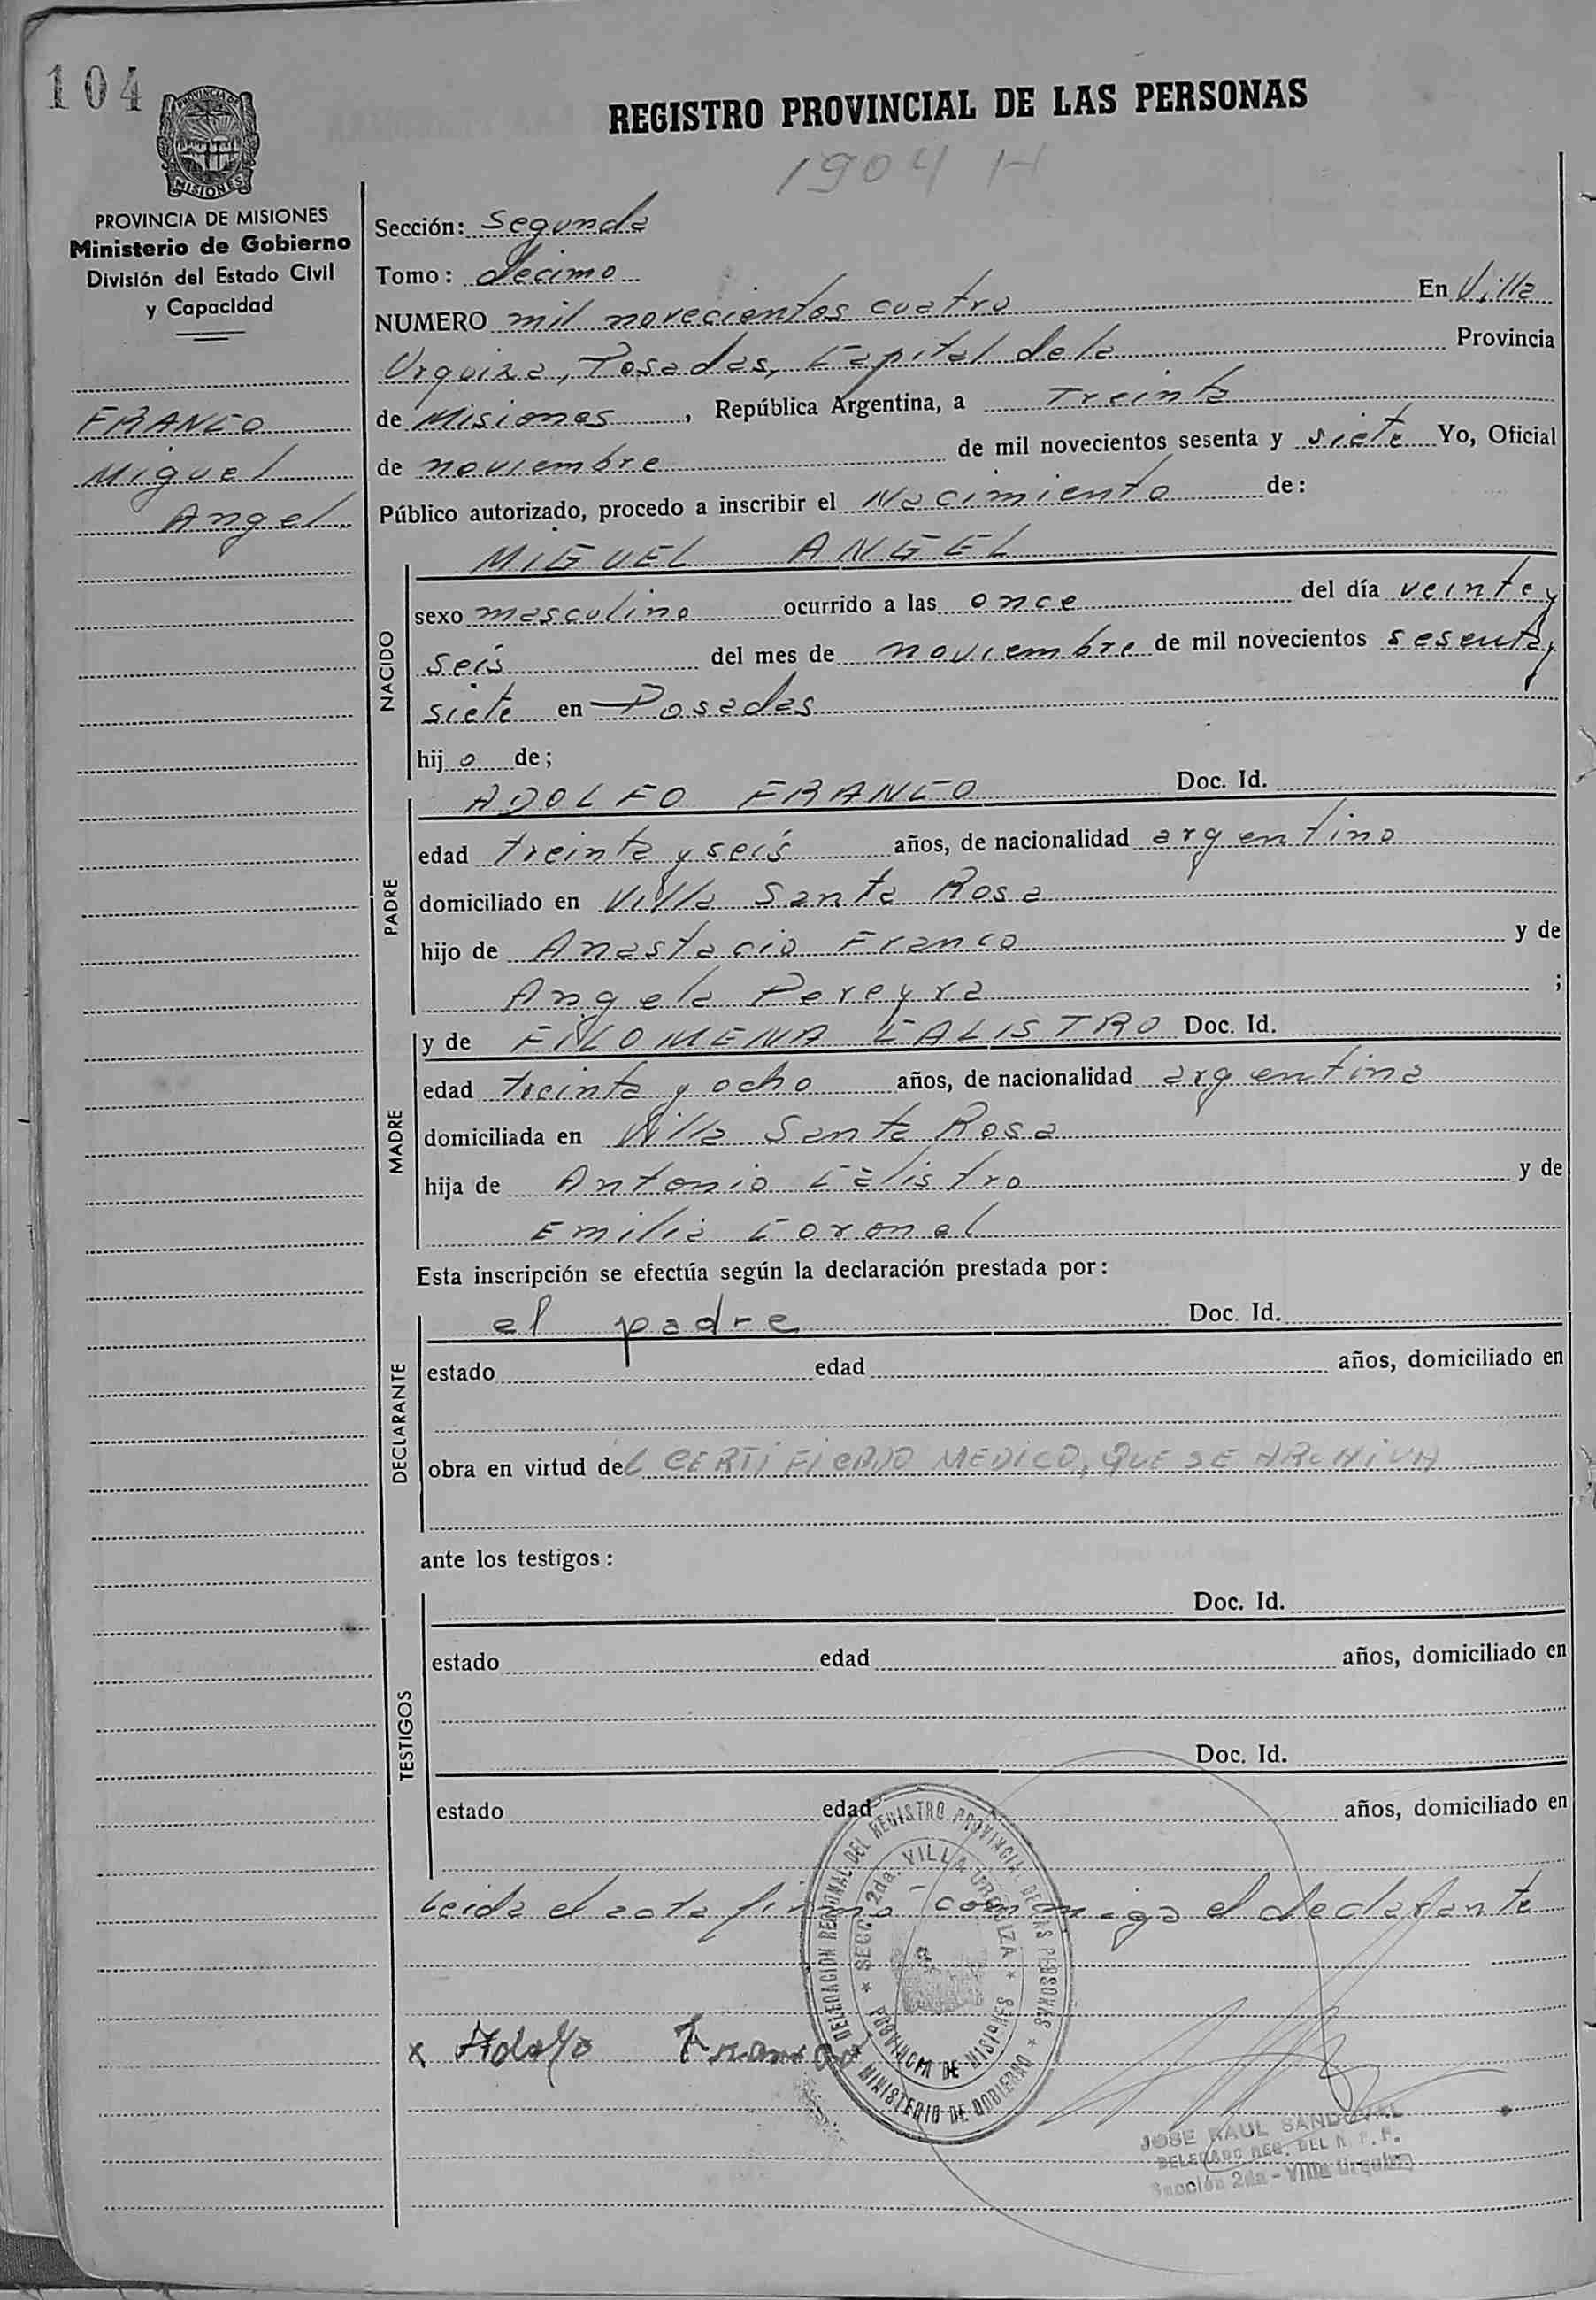 104
PROVINCIA DE
MISIONES
REGISTRO PROVINCIAL DE LAS PERSONAS
1904 H
PROVINCIA DE MISIONES
Ministerio de Gobierno
División del Estado Civil
y Capacidad
FRANCO
Miguel
Angel
Sección: Segunda
Tomo: decimo
NUMERO mil novecientos cuatro En Villa
Urquiza, Posadas, Capital de la Provincia
de Misiones, República Argentina, a Treinta
de noviembre de mil novecientos sesenta y siete Yo, Oficial
Público autorizado, procedo a inscribir el Nacimiento de:
MIGUEL ANGEL
NACIDO
sexo masculino ocurrido a las once del día veinte y
seis del mes de noviembre de mil novecientos sesenta y
siete en Posadas
hijo de;
PADRE
ADOLFO FRANCO Doc. Id.
edad treinta y seis años, de nacionalidad argentino
domiciliado en Villa Santa Rosa
hijo de Anastacio Franco y de
Angela Pereyra ;
MADRE
y de FILOMENA CALISTRO Doc. Id.
edad treinta y ocho años, de nacionalidad argentina
domiciliada en Villa Santa Rosa
hija de Antonio Calistro y de
Emilia Coronel
Esta inscripción se efectúa según la declaración prestada por:
DECLARANTE
el padre Doc. Id.
estado edad años, domiciliado en
obra en virtud del CERTIFICADO MEDICO, QUE SE ARCHIVA
ante los testigos:
TESTIGOS
Doc. Id.
estado edad años, domiciliado en
Doc. Id.
estado edad años, domiciliado en
Leida el acta firmó conmigo el declarante
x Adolfo Franco
DELEGACION REGIONAL DEL REGISTRO PROVINCIAL DE LAS PERSONAS * MINISTERIO DE GOBIERNO *
* SECC. 2da. VILLA URQUIZA * PROVINCIA DE MISIONES
JOSE RAUL SANDOVAL
DELEGADO REG. DEL R. P. P.
Sección 2da - Villa Urquiza